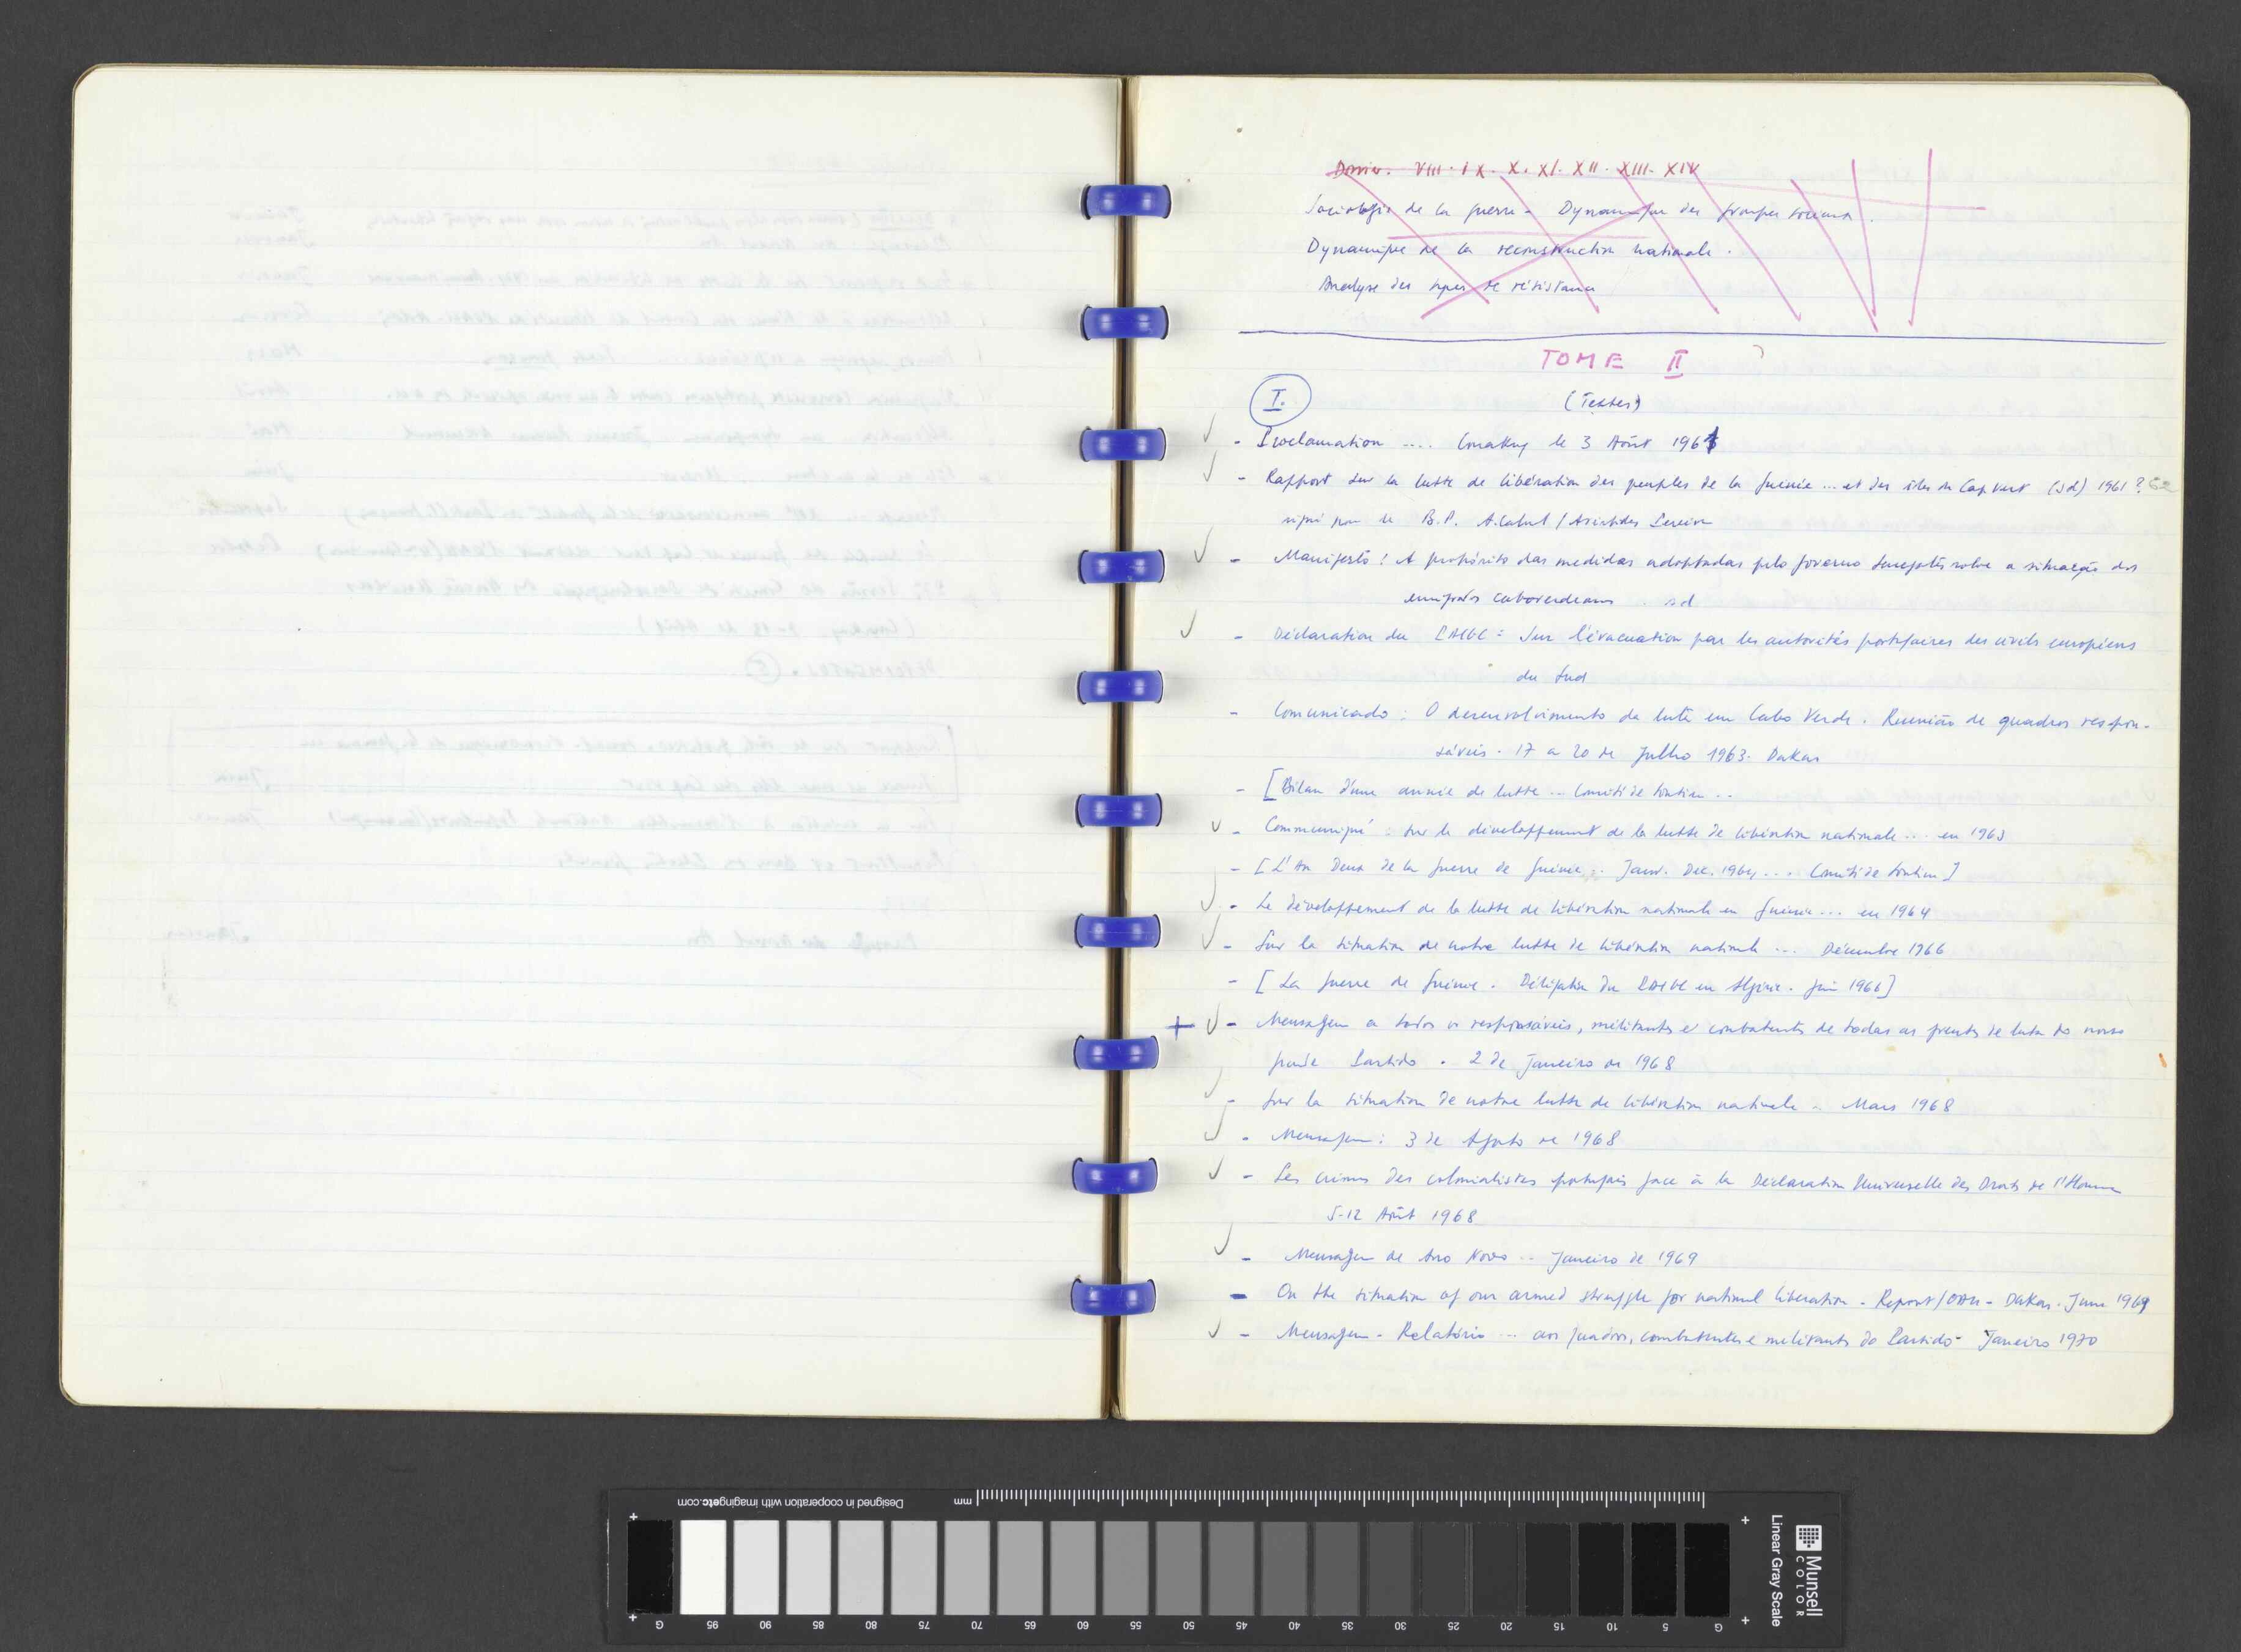 Dossier. VIII. IX. X. XI. XII. XIII. XIV
Sociologie de la guerre - Dynamique des groupes sociaux.
Dynamique de la reconstruction nationale.
Analyse des types de résistance
TOME II
I.
(Textes)
- Proclamation .... Conakry le 3 Août 1961
- Rapport sur la lutte de libération des peuples de la Guinée ... et des îles du Cap Vert (sd) 1961?
signé par le B.P. A. Cabral / Aristides Pereira
- Manifesto: A propósito das medidas adoptadas pelo governo senegalês sobre a situação dos
emigrados caboverdeanos. sd
- Déclaration du PAIGC: Sur l'évacuation par les autorités portugaises des civils européens
du Sud
- Comunicado: O desenvolvimento da luta em Cabo Verde. Reunião de quadros respon-
sáveis. 17 a 20 de Julho 1963. Dakar
- [Bilan d'une année de lutte ... Comité de Soutien ..
- Communiqué: sur le développement de la lutte de libération nationale ... en 1963
- [L'An Deux de la guerre de Guinée .. Janv. Dec. 1964 ... Comité de Soutien]
- Le développement de la lutte de libération nationale en Guinée ... en 1964
- Sur la situation de notre lutte de libération nationale ... Décembre 1966
- [La guerre de Guinée. Délégation du PAIGC en Algérie. Juin 1966]
+ - Mensagem a todos os responsáveis, militantes e combatentes de todas as frentes de luta do nosso
grande Partido. 2 de Janeiro de 1968
- Sur la situation de notre lutte de libération nationale - Mars 1968
- Mensagem: 3 de Agosto de 1968
- Les crimes des colonialistes portugais face à la Déclaration Universelle des Droits de l'Homme
5-12 Août 1968
- Mensagem de Ano Novo .. Janeiro de 1969
- On the situation of our armed struggle for national liberation - Report/OAU - Dakar. June 1969
- Mensagem - Relatório ... aos quadros, combatentes e militants do Partido - Janeiro 1970
Munsell
COLOR
Linear Gray Scale
Designed in cooperation with imagingetc.com
mm
G 95 90 85 80 75 70 65 60 55 50 45 40 35 30 25 20 15 10 5 G